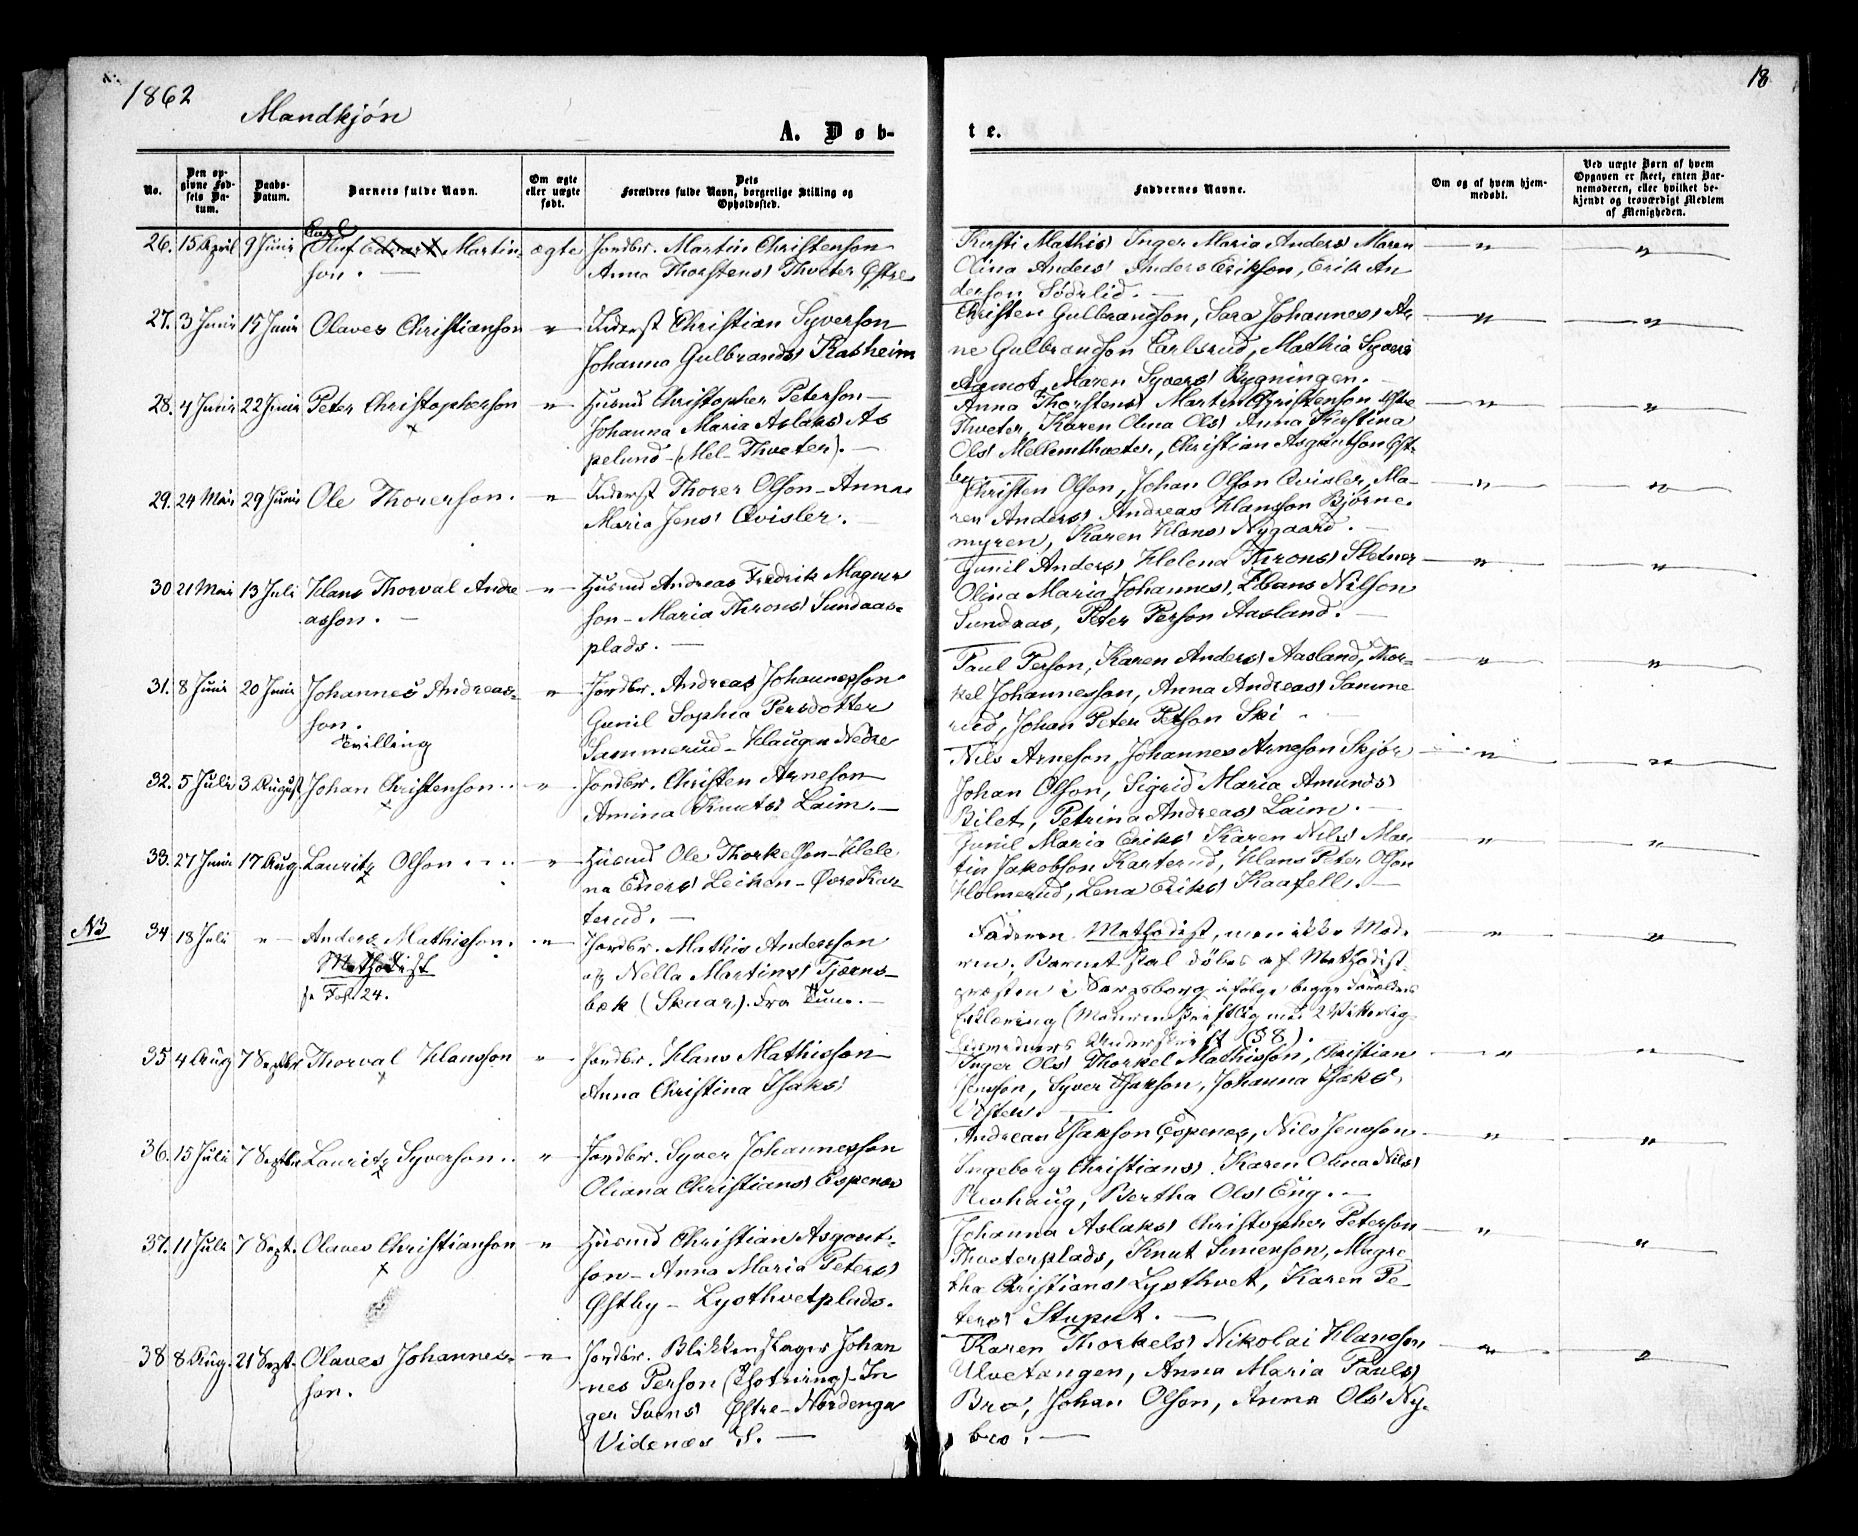 1862
18
Mandkjøn
A. Døb-
te.
No.
Den op-
givne Fød-
sels Da-
tum.
Daabs-
Datum.
Barnets fulde Navn.
Om ægte
eller uægte
født.
Dets
Forældres fulde Navn, borgerlige Stilling og
Opholdssted.
Faddernes Navne.
Om og af hvem hjem-
medøbt.
Ved uægte Børn af hvem
Opgaven er skeet, enten Bar-
nemoderen, eller hvilket be-
kjendt og troværdigt Medlem
af Menigheden.
Carl
26. 15 April 9 Juni Oluf Edvart Martin- ægte Jordbr. Martin Christenson
son. Anna Thorstens Thveter Østre
Kirsti Mathis Inger Maria Anders Maren
Olina Anders Anders Erikson, Erik An
derson Södrlid.
27. 3 Juni 15 Juni Olaves Christianson " Inderst Christian Syverson
Johanna Gulbrands Kasheim
Christen Gulbrandson, Sara Johannes Ar
ne Gulbrandson Earlsrud, Mathia Syvers
Aamot, Maren Syvers Bygningen.
28. 4 Juni 22 Juni Peter Christopherson " Husmd Christopher Peterson
Johanna Maria Aslaks As
pelund (Mel- Thveter).
Anna Thorstens Martin Christenson Østre
Thveter, Karen Olina Ols Anna Kirstina
Ols Mellemthveter, Christian Asgautson Øst
by
29. 24 Mai 29 Juni Ole Thorerson. " Inderst Thorer Olson - Anna
Maria Jens Qvisler.
Christen Olson, Johan Olson Qvisler, Ma-
ren Anders Andreas Hansson Bjørne-
myren, Karen Hans Nygaard.
30 21 Mai 13 Juli Hans Thorval Andre " Husmd Andreas Fredrik Magnus
asson. son - Maria Throns Sundaas-
plads.
Gunil Anders Helena Throns Sletner
Olina Maria Johannes, Hans Nilson
Sundaas, Peter Person Aasland.
31. 8 Juni 20 Juni Johannes Andreas- " Jordbr. Andreas Johannesson
son. Gunil Sophia Persdotter
Sammerud - Haugen Nedre
Paul Person, Karen Anders Aasland, Thor-
kel Johannesson, Anna Andreas Samme
rud, Johan Peter Petson Ski
Tvilling
32. 5 Juli 3 August Johan Christenson " Jordbr. Christen Arneson
Amina Knuts Laim.
Nils Arneson, Johannes Arneson Skjør
Johan Olson, Sigrid Maria Amunds
Bilet, Petrina Andreas Laim.
33. 27 Juni 17 Aug. Lauritz Olson " Husmd Ole Thorkelson - Hele
na Eners Leiken - Øvre Kar-
terud.
Gunil Maria Eriks Karen Nils Mar
tin Jakobson Karterud, Hans Peter Olson
Holmerud, Lena Eriks Kaafell.
NB
34 18 Juli " Anders Mathisson. " Jordbr. Mathis Andersson
Methodist og Nella Martins Tjerns-
se Fol. 24. bæk (Skuar). Fra Tune.
Faderen Methodist, men ikke Mod-
ren. Barnet skal döbes af Methodist-
præsten i Sarpsborg ifølge begge Forældres
Erklæring (Moderen skriftlig med 2 Vitterlig-
hedsmænds Underskrift (§ 8).
35 4 Aug 7 Septbr Thorval Hansson " Jordbr. Hans Mathisson
Anna Christina Isaks
Inger Ols Thorkel Mathisson, Christian
Jensson, Syver Isakson, Johanna Isaks
36. 15 Juli 7 Septbr Lauritz Syverson " Jordbr. Syver Johannesson
Oliana Christians Espenes
Andreas Isakson Espenes, Nils Jensson
Ingeborg Christians, Karen Olina Nils
Revhaug, Bertha Ols Eng.
37. 11 Juli 7 Sept. Olaves Christianson " Husmd Christian Asgaut-
son - Anna Maria Peters
Østby - Lysthvetplads.
Johanna Aslaks Christopher Peterson
Thveterplads, Knut Simenson, Magre
tha Christians Lysthvet, Karen Pe-
ters Stuput.
38 8 Aug. 21 Sept. Olaves Johannes- " Jordbr. Bliktenslager Johan
son. nes Person - In
ger Svens Østre - Nordenga
Videnæs S.
Karen Thorkels Nikolai Hansson
Ulvetangen, Anna Maria Pauls
Bro, Johan Olson, Anna Ols Ny-
bro.